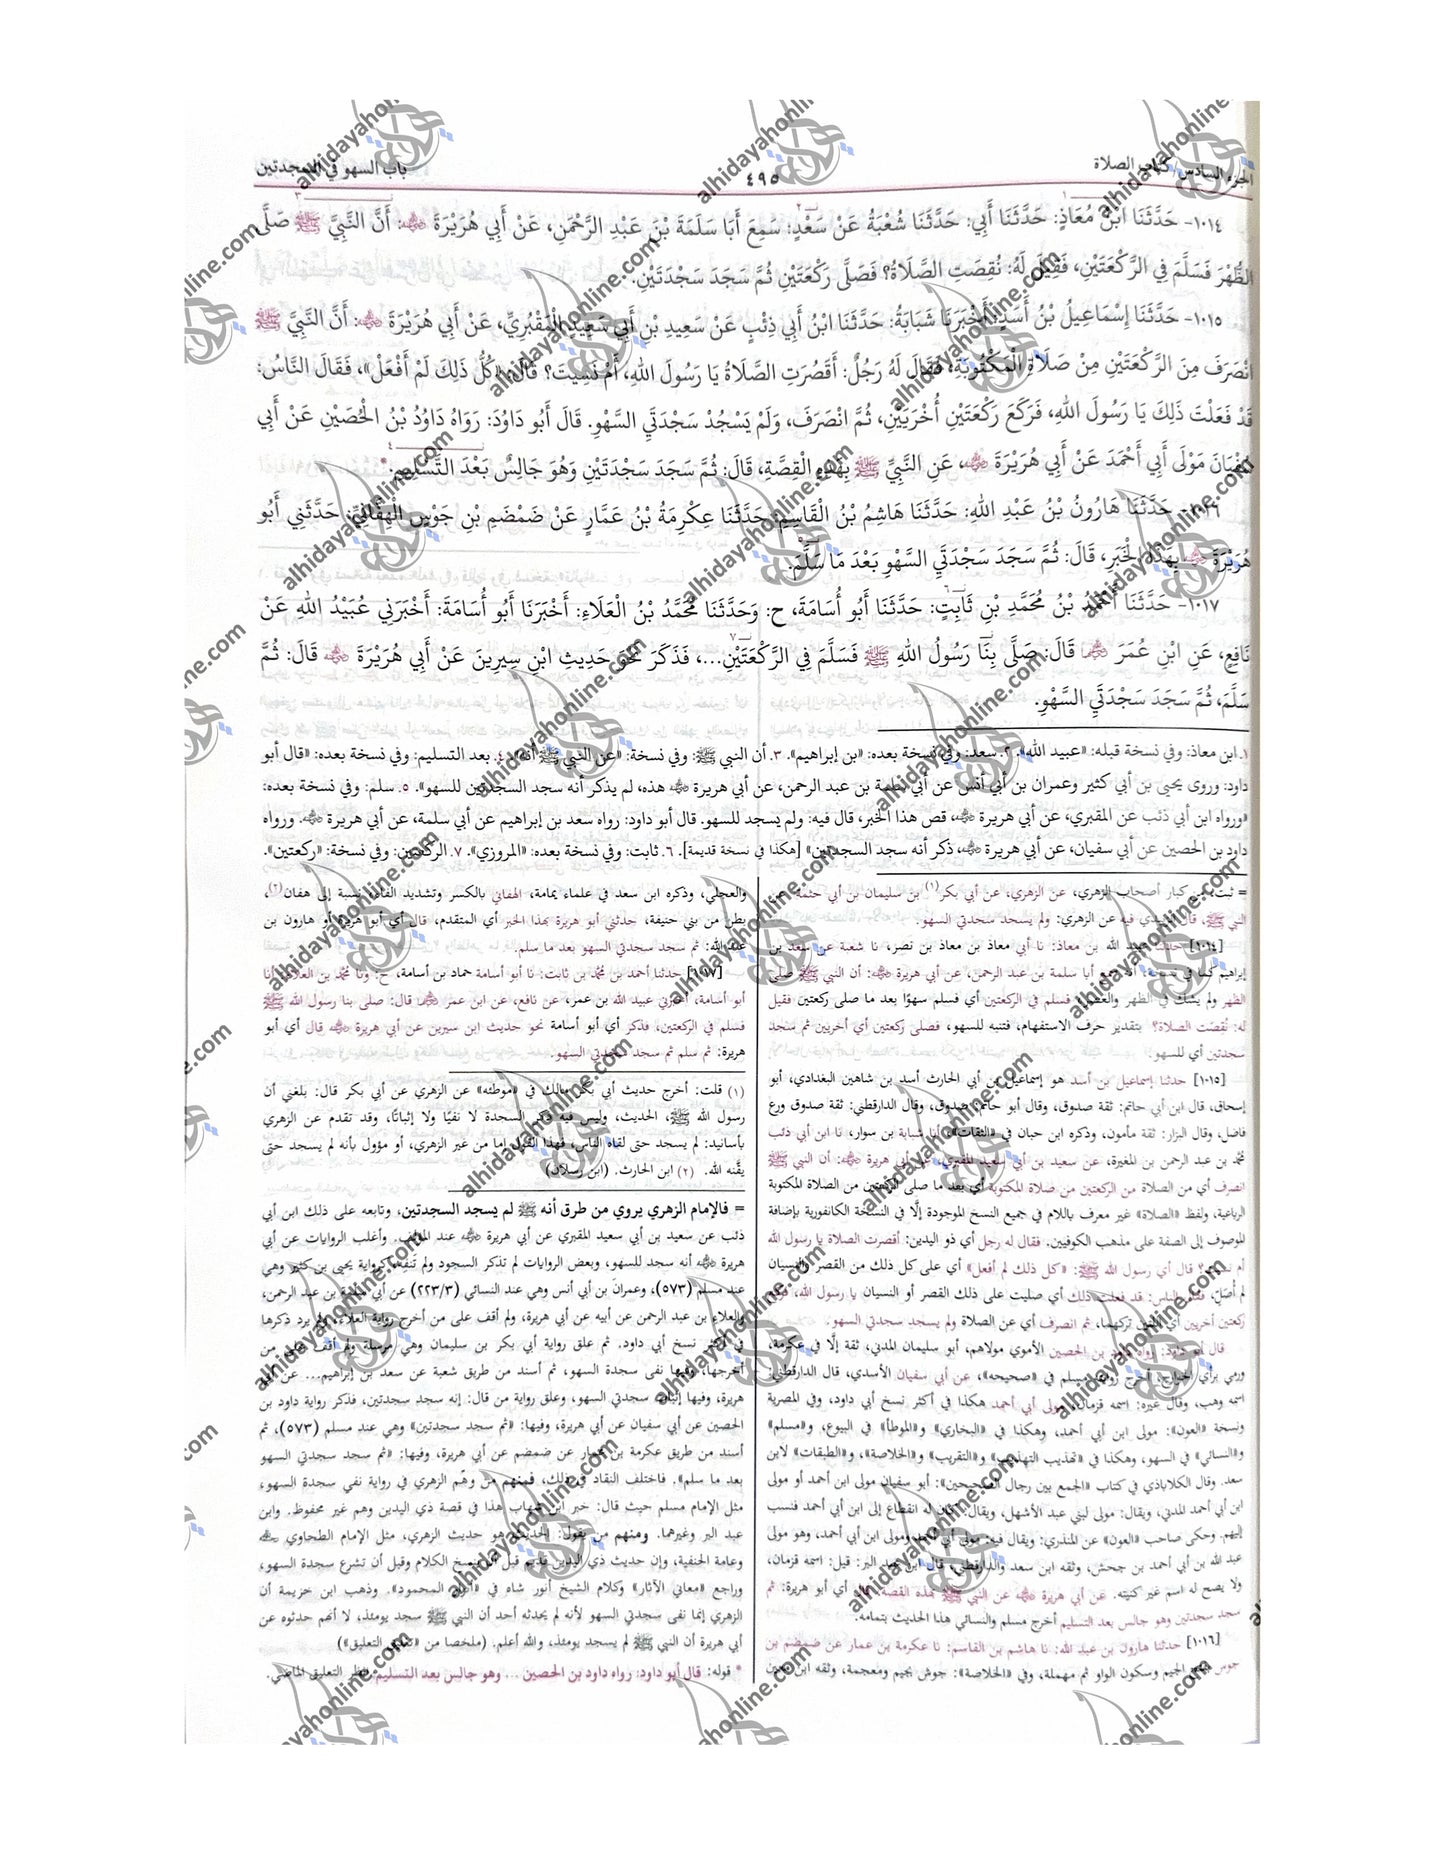 الجزء السادس / كتاب الصلاة
٤٩٥
باب السهو في السجدتين
١٠١٤- حَدَّثَنَا ابْنُ مُعَاذٍ: حَدَّثَنَا أَبِي: حَدَّثَنَا شُعْبَةُ عَنْ سَعْدٍ: سَمِعَ أَبَا سَلَمَةَ بْنَ عَبْدِ الرَّحْمَنِ، عَنْ أَبِي هُرَيْرَةَ ﵁: أَنَّ النَّبِيَّ ﷺ صَلَّى
الظُّهْرَ فَسَلَّمَ فِي الرَّكْعَتَيْنِ، فَقِيلَ لَهُ: نُقِصَتِ الصَّلَاةُ؟ فَصَلَّى رَكْعَتَيْنِ ثُمَّ سَجَدَ سَجْدَتَيْنِ.
١٠١٥- حَدَّثَنَا إِسْمَاعِيلُ بْنُ أَسَدٍ: أَخْبَرَنَا شَبَابَةُ: حَدَّثَنَا ابْنُ أَبِي ذِئْبٍ عَنْ سَعِيدِ بْنِ أَبِي سَعِيدٍ الْمَقْبُرِيِّ، عَنْ أَبِي هُرَيْرَةَ ﵁: أَنَّ النَّبِيَّ ﷺ
انْصَرَفَ مِنَ الرَّكْعَتَيْنِ مِنْ صَلَاةِ الْمَكْتُوبَةِ، فَقَالَ لَهُ رَجُلٌ: أَقَصُرَتِ الصَّلَاةُ يَا رَسُولَ اللهِ، أَمْ نَسِيتَ؟ قَالَ: «كُلُّ ذَلِكَ لَمْ أَفْعَلْ»، فَقَالَ النَّاسُ:
قَدْ فَعَلْتَ ذَلِكَ يَا رَسُولَ اللهِ، فَرَكَعَ رَكْعَتَيْنِ أُخْرَيَيْنِ، ثُمَّ انْصَرَفَ، وَلَمْ يَسْجُدْ سَجْدَتَيِ السَّهْوِ. قَالَ أَبُو دَاوُدَ: رَوَاهُ دَاوُدُ بْنُ الْحُصَيْنِ عَنْ أَبِي
سُفْيَانَ مَوْلَى أَبِي أَحْمَدَ عَنْ أَبِي هُرَيْرَةَ ﵁، عَنِ النَّبِيِّ ﷺ بِهَذِهِ الْقِصَّةِ، قَالَ: ثُمَّ سَجَدَ سَجْدَتَيْنِ وَهُوَ جَالِسٌ بَعْدَ التَّسْلِيمِ.*
١٠١٦- حَدَّثَنَا هَارُونُ بْنُ عَبْدِ اللهِ: حَدَّثَنَا هَاشِمُ بْنُ الْقَاسِمِ: حَدَّثَنَا عِكْرِمَةُ بْنُ عَمَّارٍ عَنْ ضَمْضَمِ بْنِ جَوْسٍ الْهِفَّانِيِّ: حَدَّثَنِي أَبُو
هُرَيْرَةَ ﵁ بِهَذَا الْخَبَرِ، قَالَ: ثُمَّ سَجَدَ سَجْدَتَيِ السَّهْوِ بَعْدَ مَا سَلَّمَ.
١٠١٧- حَدَّثَنَا أَحْمَدُ بْنُ مُحَمَّدِ بْنِ ثَابِتٍ: حَدَّثَنَا أَبُو أُسَامَةَ، ح: وَحَدَّثَنَا مُحَمَّدُ بْنُ الْعَلَاءِ: أَخْبَرَنَا أَبُو أُسَامَةَ: أَخْبَرَنِي عُبَيْدُ اللهِ عَنْ
نَافِعٍ، عَنِ ابْنِ عُمَرَ ﵄ قَالَ: صَلَّى بِنَا رَسُولُ اللهِ ﷺ فَسَلَّمَ فِي الرَّكْعَتَيْنِ...، فَذَكَرَ نَحْوَ حَدِيثِ ابْنِ سِيرِينَ عَنْ أَبِي هُرَيْرَةَ ﵁ قَالَ: ثُمَّ
سَلَّمَ، ثُمَّ سَجَدَ سَجْدَتَيِ السَّهْوِ.
١. ابن معاذ: وفي نسخة قبله: «عبيد الله». ٢. سعد: وفي نسخة بعده: «بن إبراهيم». ٣. أن النبي ﷺ: وفي نسخة: «عن النبي ﷺ أنه». ٤. بعد التسليم: وفي نسخة بعده: «قال أبو
داود: وروى يحيى بن أبي كثير وعمران بن أبي أنس عن أبي سلمة بن عبد الرحمن، عن أبي هريرة ﵁ هذه، لم يذكر أنه سجد السجدتين للسهو». ٥. سلم: وفي نسخة بعده:
«ورواه ابن أبي ذئب عن المقبري، عن أبي هريرة ﵁، قص هذا الخبر، قال فيه: ولم يسجد للسهو. قال أبو داود: رواه سعد بن إبراهيم عن أبي سلمة، عن أبي هريرة ﵁. ورواه
داود بن الحصين عن أبي سفيان، عن أبي هريرة ﵁، ذكر أنه سجد السجدتين» [هكذا في نسخة قديمة]. ٦. ثابت: وفي نسخة بعده: «المروزي». ٧. الركعتين: وفي نسخة: «ركعتين».
= ثبت عن كبار أصحاب الزهري، عن الزهري، عن أبي بكر(١) بن سليمان بن أبي حثمة، عن
النبي ﷺ، قال الزبيدي فيه عن الزهري: ولم يسجد سجدتي السهو.
[١٠١٤] حدثنا عبيد الله بن معاذ: نا أبي معاذ بن معاذ بن نصر، نا شعبة عن سعد بن
إبراهيم كما في نسخة: أنه سمع أبا سلمة بن عبد الرحمن، عن أبي هريرة ﵁: أن النبي ﷺ صلى
الظهر ولم يشك في الظهر والعصر، فسلم في الركعتين أي فسلم سهوًا بعد ما صلى ركعتين فقيل
له: نُقِصَت الصلاة؟ بتقدير حرف الاستفهام، فتنبه للسهو، فصلى ركعتين أي أخريين ثم سجد
سجدتين أي للسهو.
[١٠١٥] حدثنا إسماعيل بن أسد هو إسماعيل بن أبي الحارث أسد بن شاهين البغدادي، أبو
إسحاق، قال ابن أبي حاتم: ثقة صدوق، وقال أبو حاتم: صدوق، وقال الدارقطني: ثقة صدوق ورع
فاضل، وقال البزار: ثقة مأمون، وذكره ابن حبان في «الثقات»، أنا شبابة بن سوار، نا ابن أبي ذئب
محمد بن عبد الرحمن بن المغيرة، عن سعيد بن أبي سعيد المقبري، عن أبي هريرة ﵁: أن النبي ﷺ
انصرف أي من الصلاة من الركعتين من صلاة المكتوبة أي بعد ما صلى الركعتين من الصلاة المكتوبة
الرباعية، ولفظ «الصلاة» غير معرف باللام في جميع النسخ الموجودة إلَّا في النسخة الكانفورية بإضافة
الموصوف إلى الصفة على مذهب الكوفيين. فقال له رجل أي ذو اليدين: أقصرت الصلاة يا رسول الله
أم نسيت؟ قال أي رسول الله ﷺ: «كل ذلك لم أفعل» أي على كل ذلك من القصر والنسيان
لم أُصَلِّ، فقال الناس: قد فعلت ذلك أي صليت على ذلك القصر أو النسيان يا رسول الله، فركع
ركعتين أخريين أي اللتين تركهما، ثم انصرف أي عن الصلاة ولم يسجد سجدتي السهو.
قال أبو داود: رواه داود بن الحصين الأموي مولاهم، أبو سليمان المدني، ثقة إلَّا في عكرمة،
ورمي برأي الخوارج، أخرج روايته مسلم في «صحيحه»، عن أبي سفيان الأسدي، قال الدارقطني:
اسمه وهب، وقال غيره: اسمه قزمان، مولى أبي أحمد هكذا في أكثر نسخ أبي داود، وفي المصرية
ونسخة «العون»: مولى ابن أبي أحمد، وهكذا في «البخاري» و«الموطأ» في البيوع، و«مسلم»
و«النسائي» في السهو، وهكذا في «تهذيب التهذيب» و«التقريب» و«الخلاصة»، و«الطبقات» لابن
سعد. وقال الكلاباذي في كتاب «الجمع بين رجال الصحيحين»: أبو سفيان مولى ابن أحمد أو مولى
ابن أبي أحمد المدني، ويقال: مولى لبني عبد الأشهل، ويقال: كان له انقطاع إلى ابن أبي أحمد فنسب
إليهم. وحكى صاحب «العون» عن المنذري: ويقال فيه: مولى أبي أحمد ومولى ابن أبي أحمد، وهو مولى
عبد الله بن أبي أحمد بن جحش، وثقه ابن سعد والدارقطني، قال ابن عبد البر: قيل: اسمه قزمان،
ولا يصح له اسم غير كنيته. عن أبي هريرة ﵁ عن النبي ﷺ بهذه القصة، قال أي أبو هريرة: ثم
سجد سجدتين وهو جالس بعد التسليم أخرج مسلم والنسائي هذا الحديث بتمامه.
[١٠١٦] حدثنا هارون بن عبد الله: نا هاشم بن القاسم: نا عكرمة بن عمار عن ضمضم بن
جوس بفتح الجيم وسكون الواو ثم مهملة، وفي «الخلاصة»: جوش بجيم ومعجمة، وثقه ابن معين
والعجلي، وذكره ابن سعد في علماء يمامة، الهفاني بالكسر وتشديد الفاء، نسبة إلى هفان(٢)،
بطن من بني حنيفة، حدثني أبو هريرة بهذا الخبر أي المتقدم، قال أي أبو هريرة أو هارون بن
عبد الله: ثم سجد سجدتي السهو بعد ما سلم.
[١٠١٧] حدثنا أحمد بن محمد بن ثابت: نا أبو أسامة حماد بن أسامة، ح: ونا محمد بن العلاء: أنا
أبو أسامة، أخبرني عبيد الله بن عمر، عن نافع، عن ابن عمر ﵄ قال: صلى بنا رسول الله ﷺ
فسلم في الركعتين، فذكر أي أبو أسامة نحو حديث ابن سيرين عن أبي هريرة ﵁ قال أي أبو
هريرة: ثم سلم ثم سجد سجدتي السهو.
(١) قلت: أخرج حديث أبي بكر مالك في «موطئه» عن الزهري عن أبي بكر قال: بلغني أن
رسول الله ﷺ، الحديث، وليس فيه ذكر السجدة لا نفيًا ولا إثباتًا، وقد تقدم عن الزهري
بأسانيد: لم يسجد حتى لقاه الناس، فهذا القول إما من غير الزهري، أو مؤول بأنه لم يسجد حتى
يقَّنه الله. (٢) ابن الحارث. (ابن رسلان)
= فالإمام الزهري يروي من طرق أنه ﷺ لم يسجد السجدتين، وتابعه على ذلك ابن أبي
ذئب عن سعيد بن أبي سعيد المقبري عن أبي هريرة ﵁ عند المؤلف. وأغلب الروايات عن أبي
هريرة ﵁ أنه سجد للسهو، وبعض الروايات لم تذكر السجود ولم تَنفِهْ، كرواية يحيى بن كثير وهي
عند مسلم (٥٧٣)، وعمران بن أبي أنس وهي عند النسائي (٢٢٣/٣) عن أبي سلمة بن عبد الرحمن،
والعلاء بن عبد الرحمن عن أبيه عن أبي هريرة، ولم أقف على من أخرج رواية العلاء، ولم يرد ذكرها
في أكثر نسخ أبي داود. ثم علق رواية أبي بكر بن سليمان وهي مرسلة ولم أقف على من
أخرجها، وفيها نفى سجدة السهو، ثم أسند من طريق شعبة عن سعد بن إبراهيم... عن أبي
هريرة، وفيها إثبات سجدتي السهو، وعلق رواية من قال: إنه سجد سجدتين، فذكر رواية داود بن
الحصين عن أبي سفيان عن أبي هريرة، وفيها: «ثم سجد سجدتين» وهي عند مسلم (٥٧٣)، ثم
أسند من طريق عكرمة بن عمار عن ضمضم عن أبي هريرة، وفيها: «ثم سجد سجدتي السهو
بعد ما سلم». فاختلف النقاد في ذلك، فمنهم من وهّم الزهري في رواية نفي سجدة السهو،
مثل الإمام مسلم حيث قال: خبر ابن شهاب هذا في قصة ذي اليدين وهم غير محفوظ. وابن
عبد البر وغيرهما. ومنهم من يقول: الحديث هو حديث الزهري، مثل الإمام الطحاوي ﵀
وعامة الحنفية، وإن حديث ذي اليدين قديم قبل أن ينسخ الكلام وقبل أن تشرع سجدة السهو،
وراجع «معاني الآثار» وكلام الشيخ أنور شاه في «أنوار المحمود». وذهب ابن خزيمة أن
الزهري إنما نفى سجدتي السهو لأنه لم يحدثه أحد أن النبي ﷺ سجد يومئذ، لا أنهم حدثوه عن
أبي هريرة أن النبي ﷺ لم يسجد يومئذ، والله أعلم. (ملخصا من «تعليق التعليق»)
* قوله: قال أبو داود: رواه داود بن الحصين ... وهو جالس بعد التسليم: انظر التعليق الماضي.
alhidayahonline.com